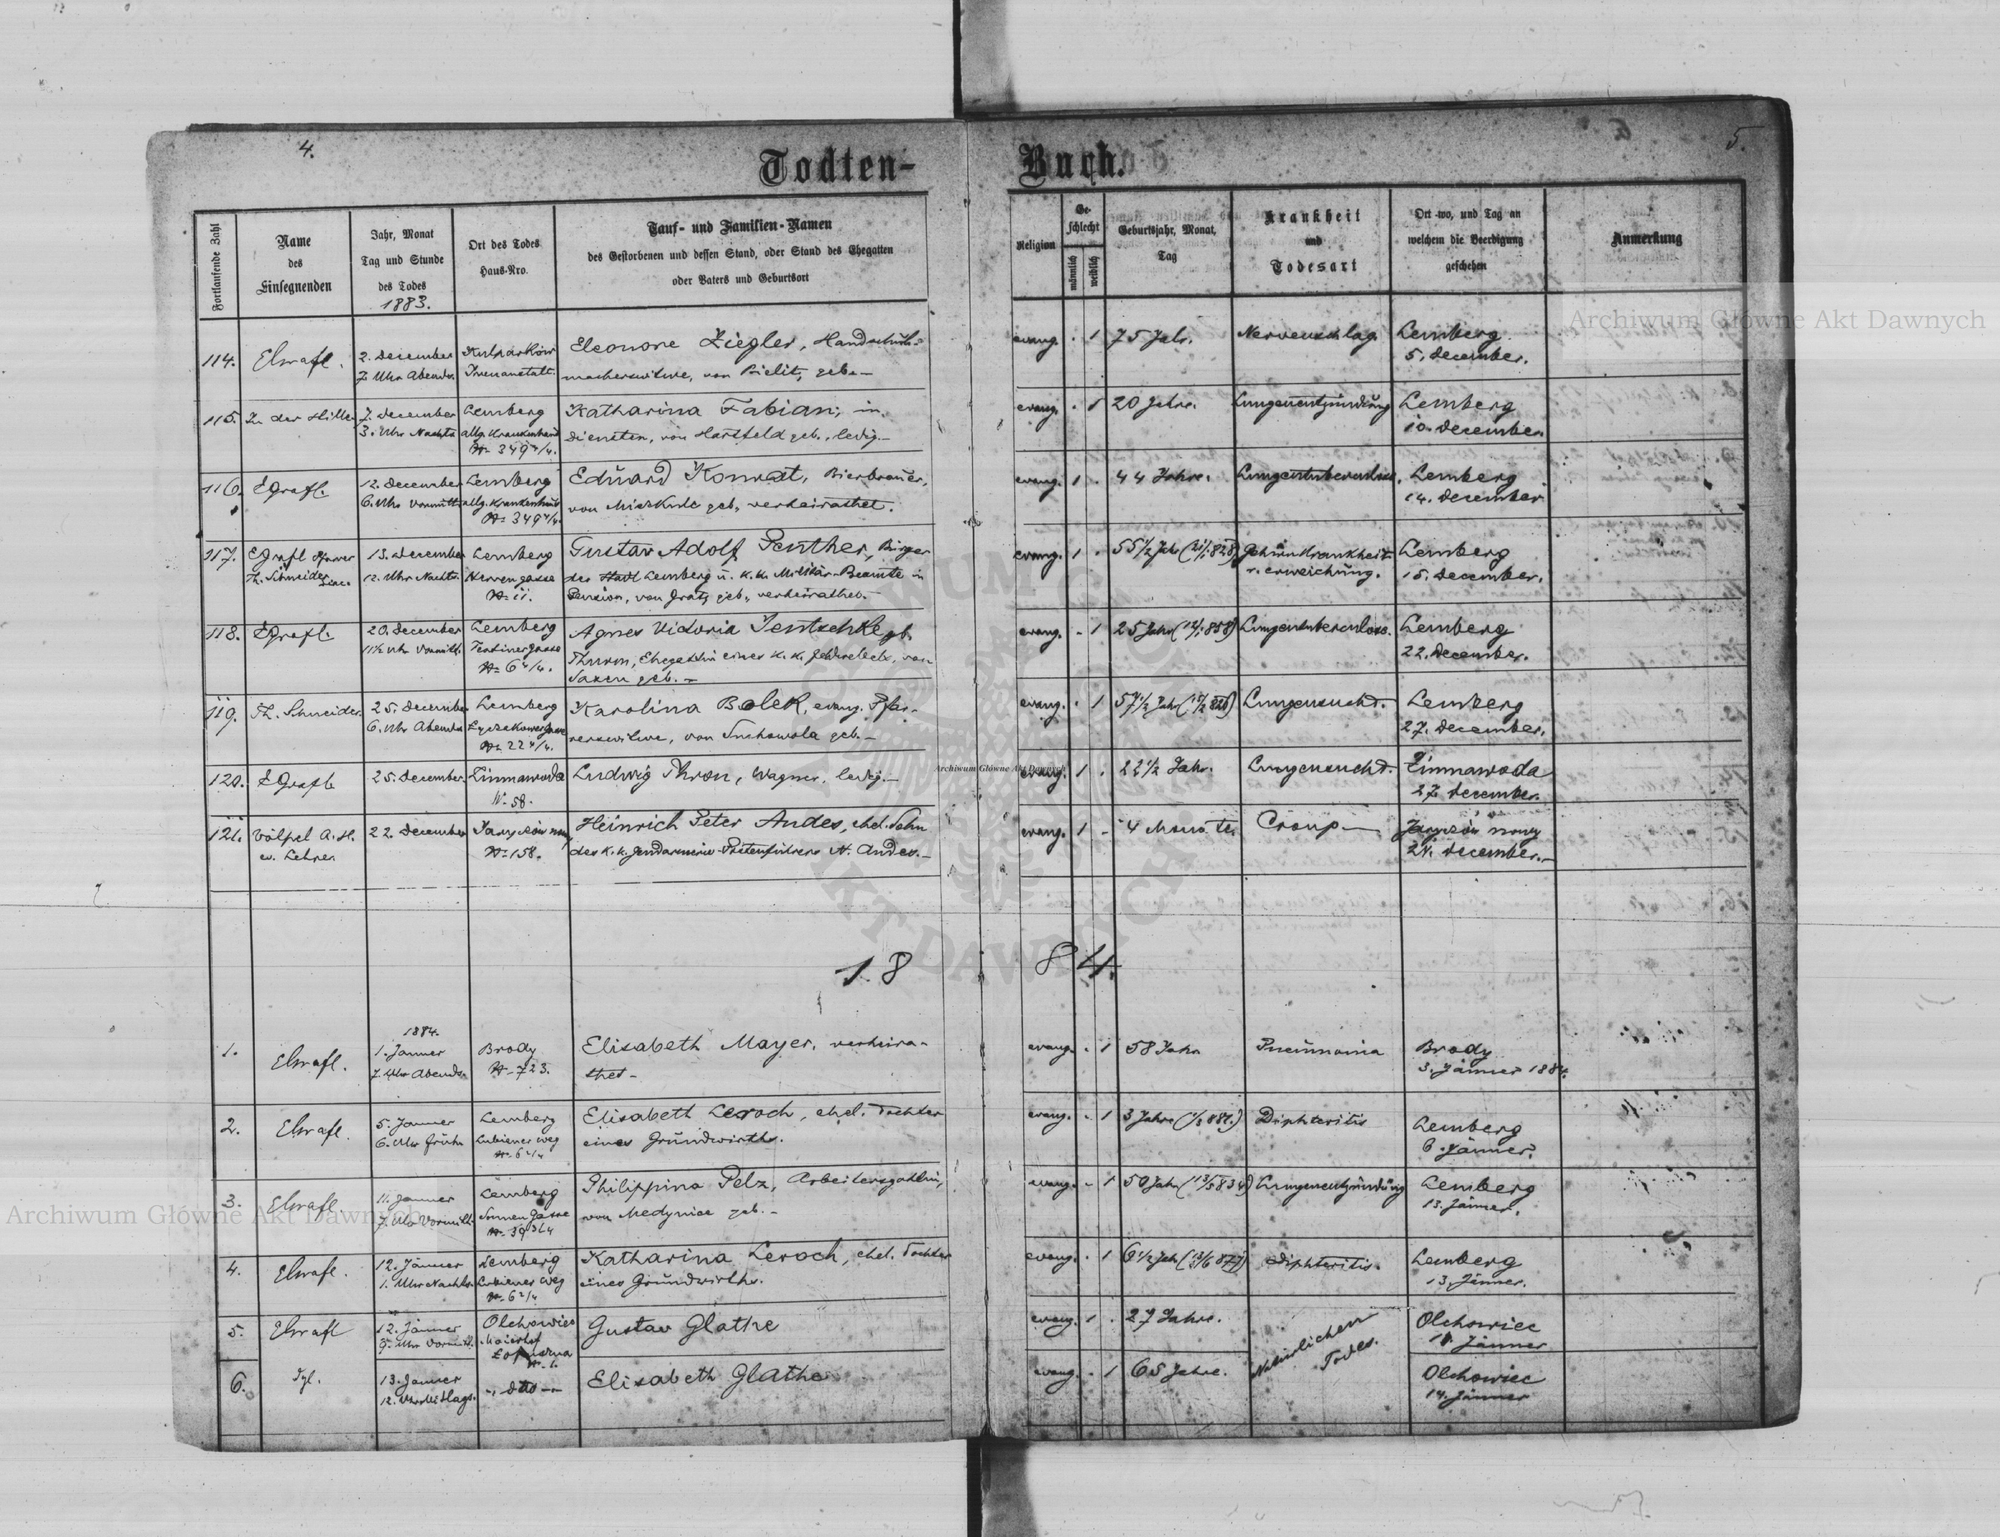 4.
5.
Todten-
Buch.
Fortlaufende Zahl
Name
des
Einsegnenden
Jahr, Monat
Tag und Stunde
des Todes
1883.
Ort des Todes
Haus-Nro.
Tauf- und Familien-Namen
des Gestorbenen und dessen Stand, oder Stand des Ehegatten
oder Vaters und Geburtsort
Religion
Ge-
schlecht
männlich
weiblich
Geburtsjahr, Monat,
Tag
Krankheit
und
Todesart
Ort wo, und Tag an
welchem die Beerdigung
geschehen
Anmerkung
114.
2. December
7. Uhr Abends.
Kulparków
Irrenanstalt.
Eleonore Ziegler, Handschuh-
macherswitwe, von Bielitz geb.-
evang. . 1
75 Jahr.
Nervenschlag.
Lemberg
5. December.
115.
In der Hille
7. December
3. Uhr Nachts
Lemberg
allg. Krankenhaus
N. 349 4/4.
Katharina Fabian, in
Diensten, von Hartfeld geb., ledig.-
evang. . 1
20 Jahre.
Lungenentzündung
Lemberg
10. December.
116.
12. December
6. Uhr Vormitt.
Lemberg
allg. Krankenhaus
N. 349 4/4.
Eduard Konrat, Bierbrauer,
von geb., verheirathet.
evang. 1 .
44 Jahre.
Lungentuberculose.
Lemberg
14. December
117.
Pfarrer
Th. Schneider
13. December
12. Uhr Nachts.
Lemberg
Herrengasse
N. 11.
Gustav Adolf Penther, Bürger
der Stadt Lemberg u. k.k. Militär-Beamte in
Pension, von Gratz geb., verheirathet.-
evang. 1 .
55 1/2 Jahr
Gehirnkrankheit
u. erweichung.
Lemberg
15. December.
118.
20. December
11 1/2 Uhr Vormitt.
Lemberg
N. 6 4/4.
Agnes Victoria Jentschke gb.
Thuron, Ehegattin eines k.k. von
Saxen geb.-
evang. - 1
25 Jahr
Lungentuberculose.
Lemberg
22. December.
119.
Th. Schneider.
25. December
6. Uhr Abends
Lemberg
Lyczakowergasse
N. 22 4/4.
Karolina Bolek, evang. Pfar-
rerswitwe, von Suchowola geb.-
evang. . 1
57 1/2 Jahr
Lungensucht.
Lemberg
27. December.
120.
25. December.
Zimnawoda
N. 58.
Ludwig Thron, Wagner, ledig.-
evang. 1 .
22 1/2 Jahr.
Lungensucht.
Zimnawoda
27. December.
121.
Völpel A. H.
ev. Lehrer.
22. December
N. 158.
Heinrich Peter Andes, ehel. Sohn
des k.k. Gendarmerie-Postenführers N. Andes.-
evang. 1 -
4 Monate.
Croup-
24. December.-
18 84.
1.
1884.
1. Jänner
7. Uhr Abends.
Brody
N. 723.
Elisabeth Mayer, verheira-
thet-
evang. . 1
58 Jahr
Pneumonia
Brody
3. Jänner 1884.
2.
5. Jänner
6. Uhr früh
Lemberg
Lubiener weg
N. 6 2/4
Elisabeth Leroch, ehel. Tochter
eines Grundwirths.
evang. . 1
3 Jahre
Diphteritis
Lemberg
6. Jänner.
3.
11. Jänner
7. Uhr Vormitt.
Lemberg
Sonnengasse
N. 39 3/4
Philippina Pelz, Arbeitersgattin,
von Medynice geb.-
evang. - 1
50 Jahr
Lungenentzündung
Lemberg
13. Jänner.
4.
12. Jänner
1. Uhr Nachts.
Lemberg
Lubiener weg
N. 6 2/4
Katharina Leroch, ehel. Tochter
eines Grundwirths.
evang. . 1
6 1/2 Jahr
Diphteritis.
Lemberg
13. Jänner.
5.
12. Jänner
9. Uhr Vormitt.
Olchowiec
Maierhof
N. 1.
Gustav Glathe
evang. 1 .
27 Jahre.
Natürlichen
Todes.
Olchowiec
Jänner
6.
13. Jänner
12. Uhr Mittags.
-, dtto -
Elisabeth Glathe
evang. . 1
65 Jahre.
Olchowiec
14. Jänner
Archiwum Główne Akt Dawnych
Archiwum Główne Akt Dawnych
Archiwum Główne Akt Dawnych